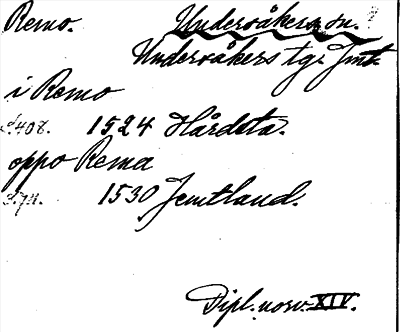 Remo. Undersåkers sn.
Undersåkers tg. Jmt.
i Remo
s. 408. 1524 Hårdsta.
oppo Rema
s. 74. 1530 Jemtland.
Dipl. norv. XIV.